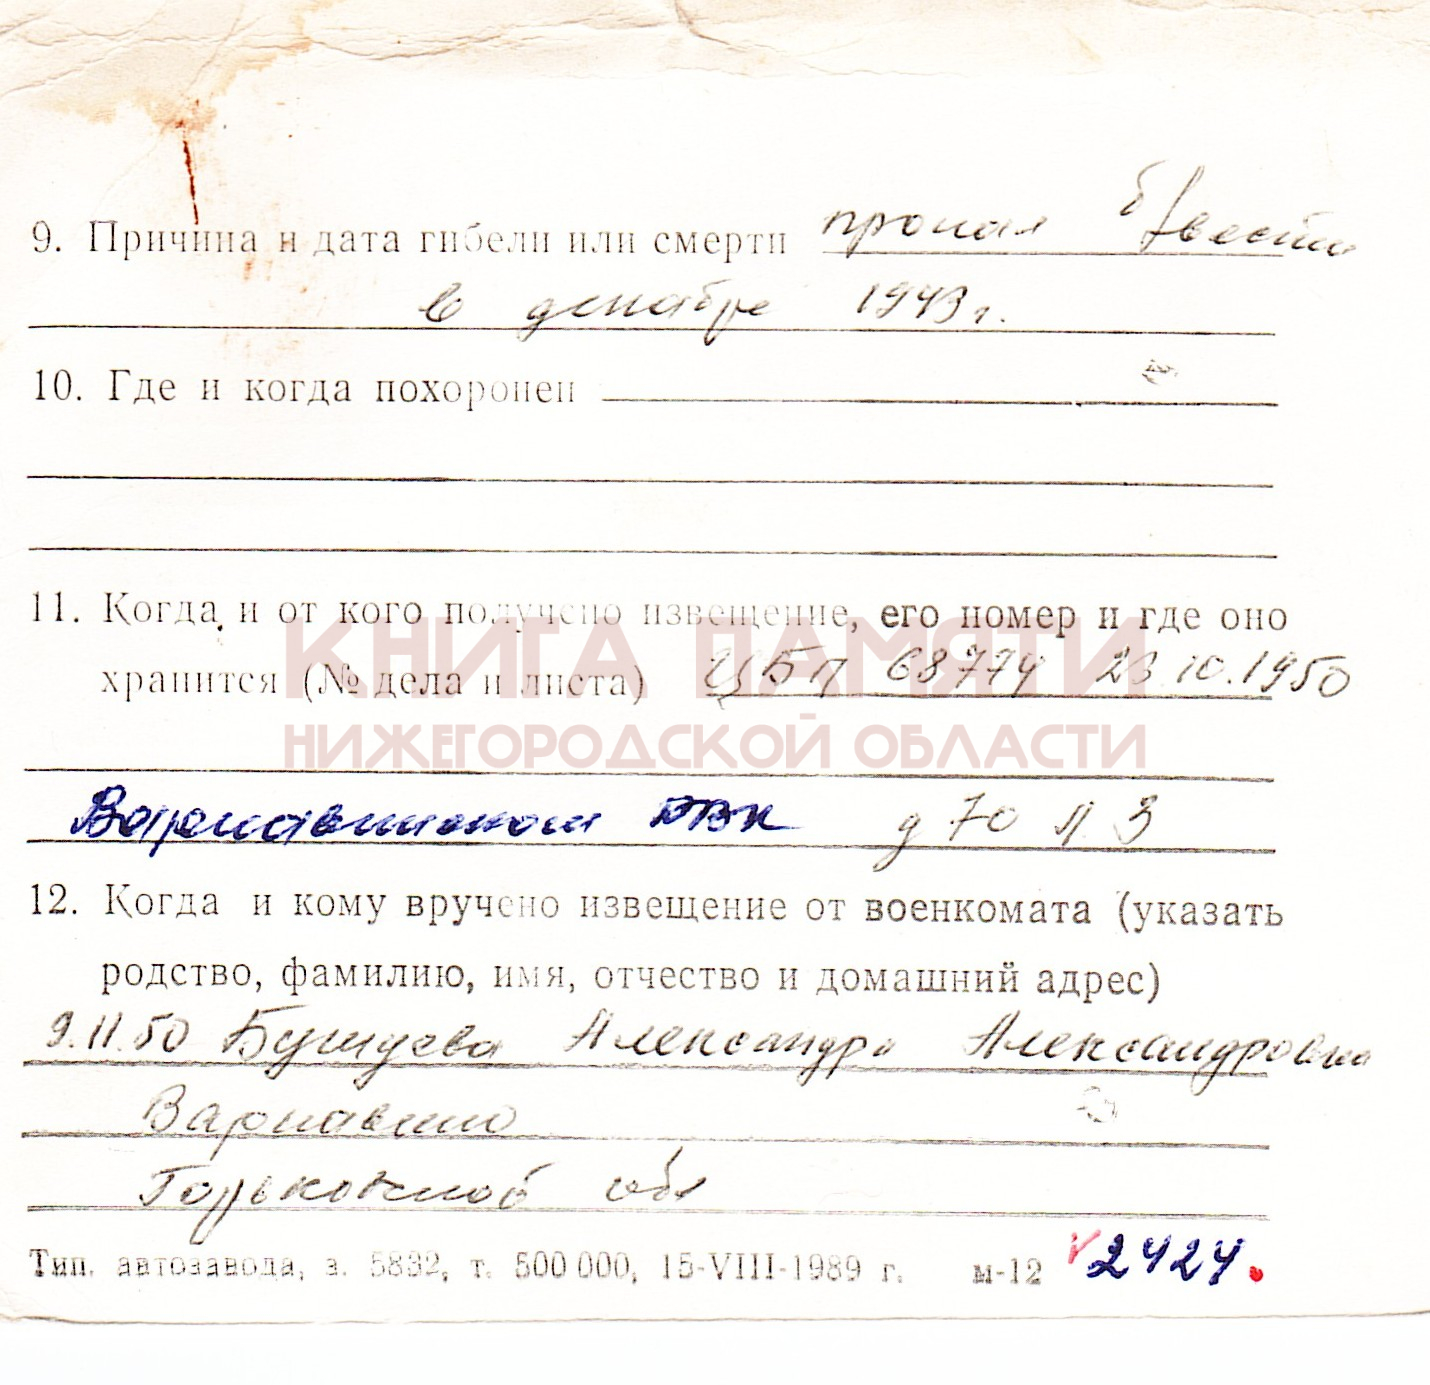 9. Причина и дата гибели или смерти пропал б/вести
в декабре 1943 г.
10. Где и когда похоронен
11. Когда и от кого получено извещение, его номер и где оно
хранится (№ дела и листа) ЦБП 68774 23.10.1950
КНИГА ПАМЯТИ
НИЖЕГОРОДСКОЙ ОБЛАСТИ
Варнавинском РВК д 70 л 3
12. Когда и кому вручено извещение от военкомата (указать
родство, фамилию, имя, отчество и домашний адрес)
9.11.50 Бушуева Александра Александровна
Варнавино
Горьковской обл
Тип. автозавода, з. 5832, т. 500 000, 15-VIII-1989 г. м-12 2424